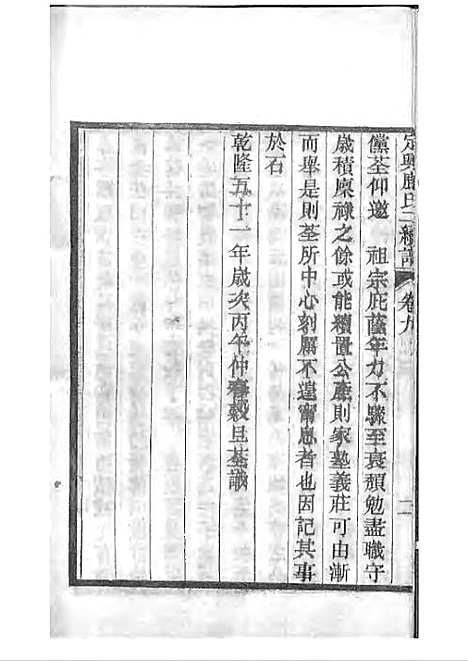 定興鹿氏二續譜 卷九 二
儻荃仰邀 祖宗庇蔭年力不驟至衰頹勉盡職守
歲積廩祿之餘或能續置公產則家塾義莊可由漸
而舉是則荃所中心刻厲不遑寧息者也因記其事
於石
乾隆五十一年歲次丙午仲春穀旦荃識